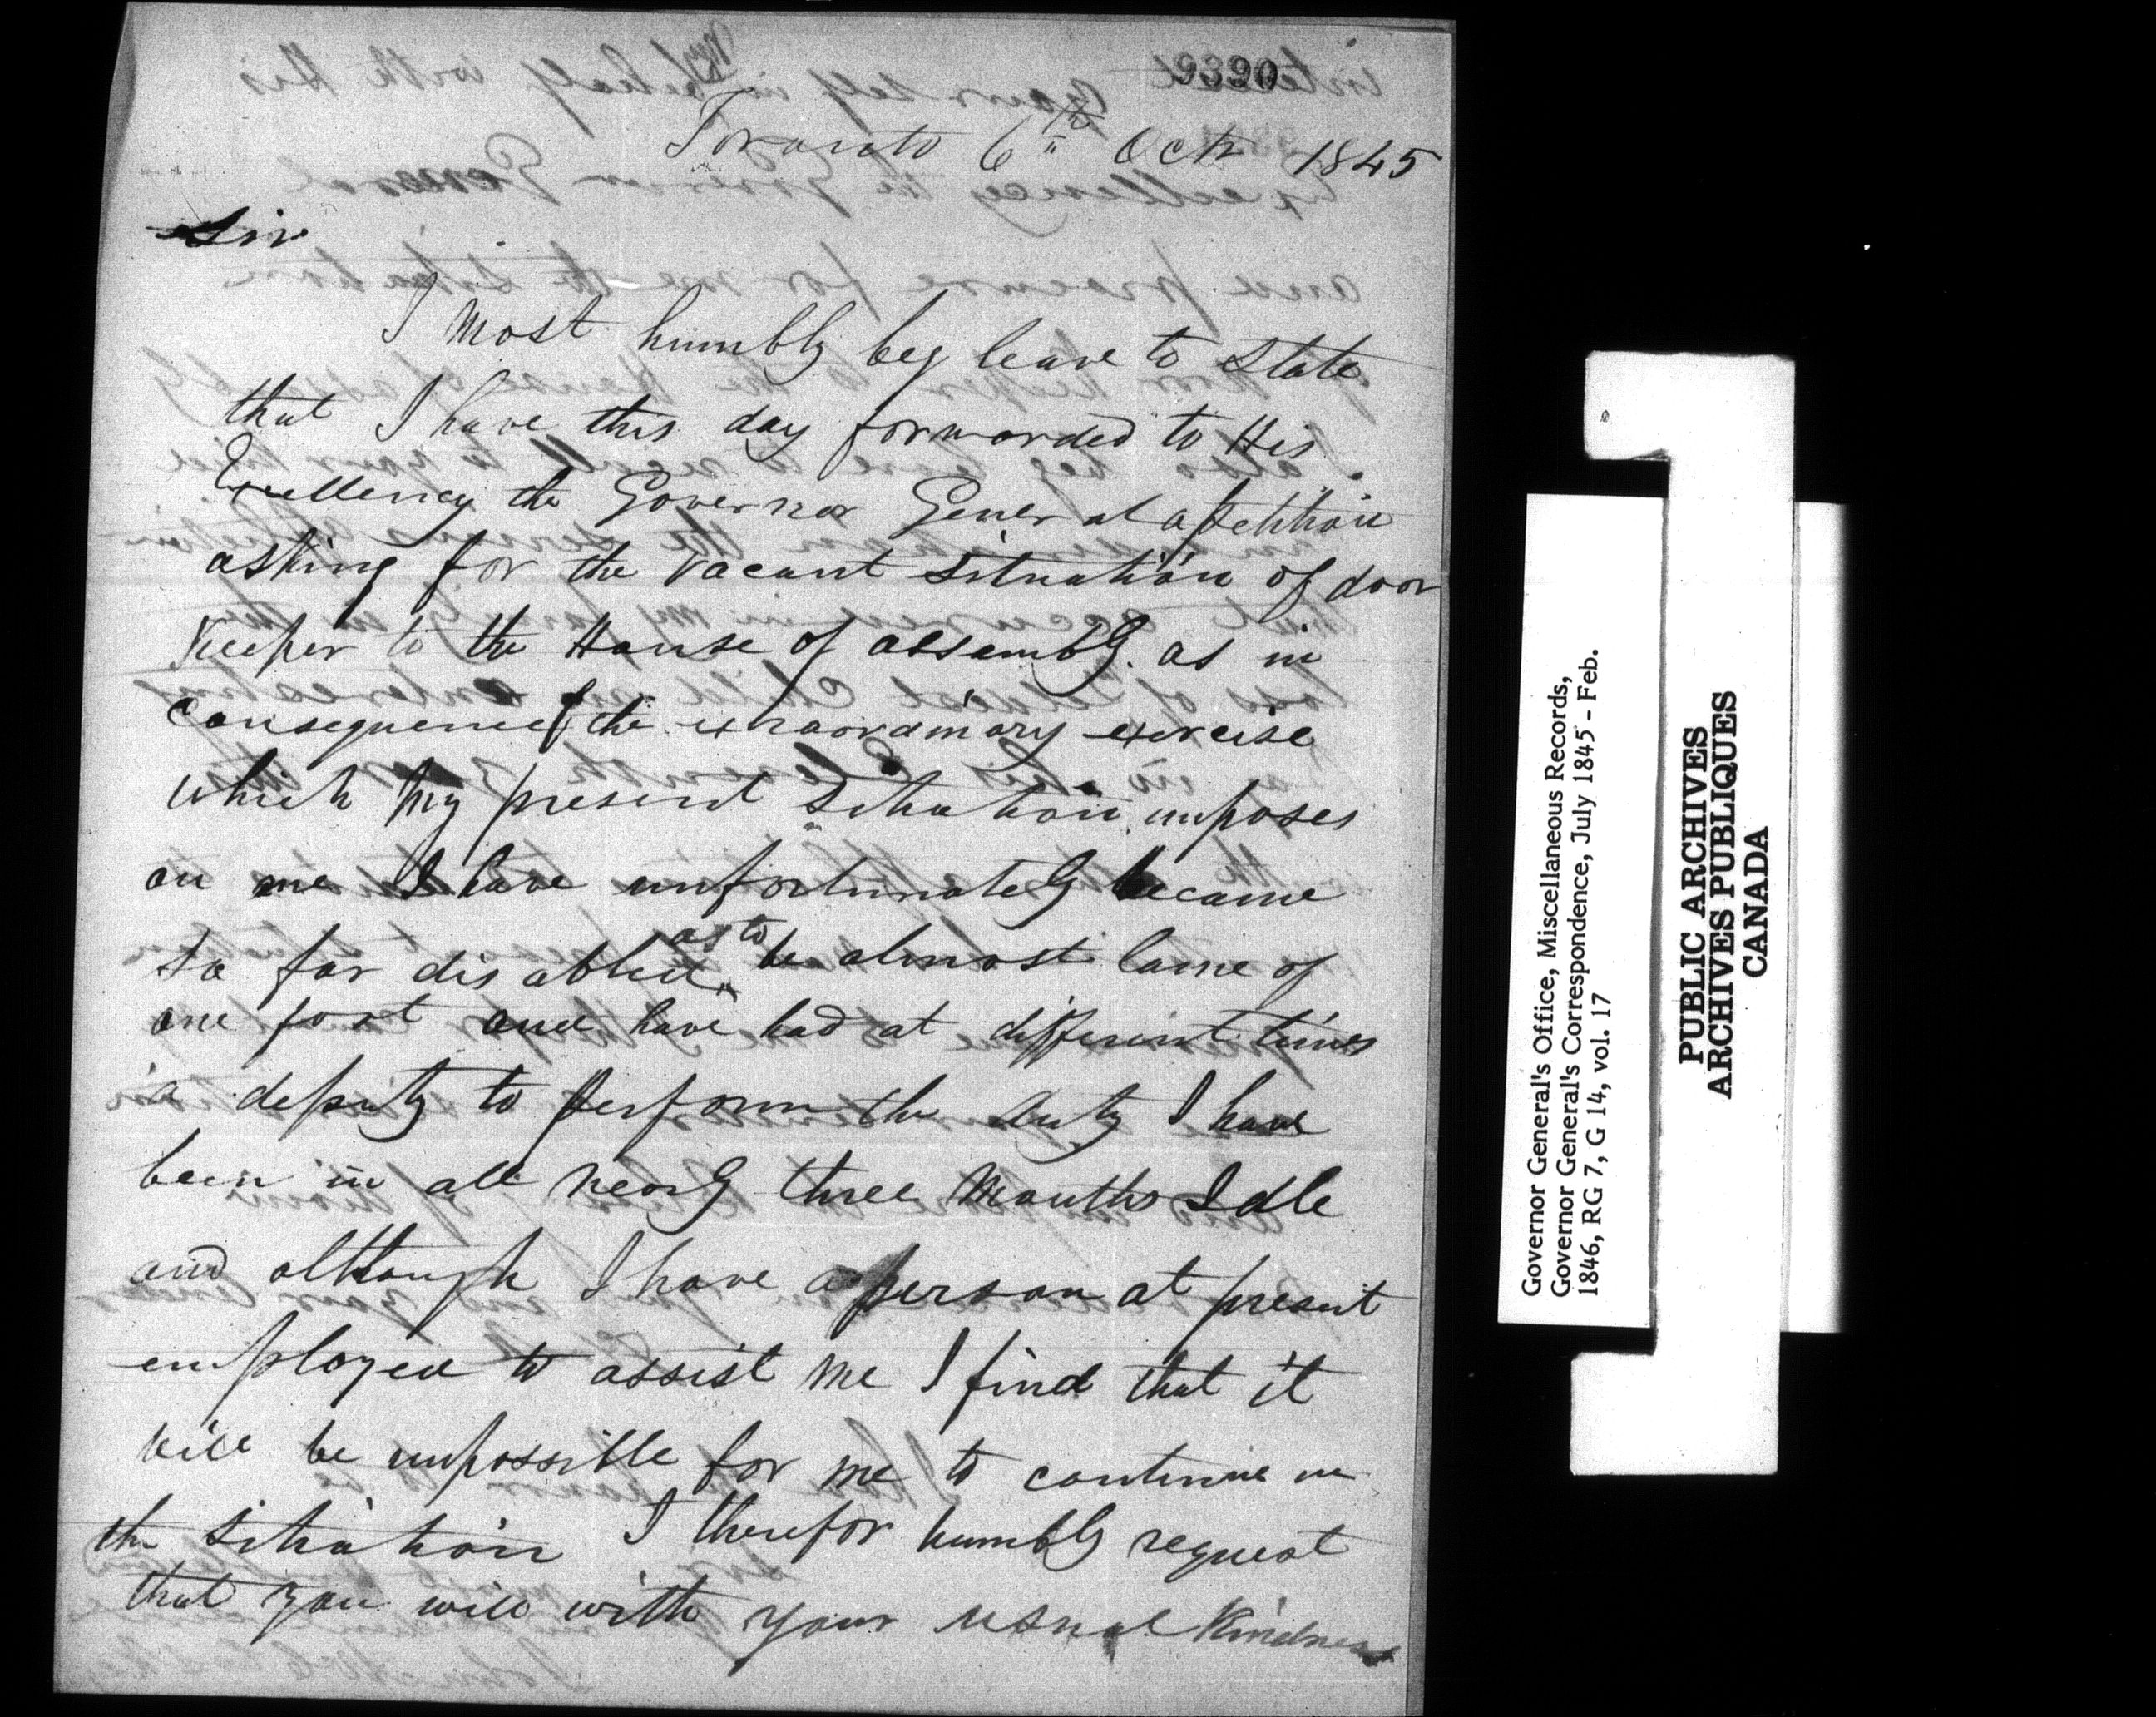 9390
Toronto 6th Octr 1845
Sir
I most humbly beg leave to state
that I have this day forwarded to His
Excellency the Governor General a petition
asking for the vacant situation of door
Keeper to the House of assembly. as in
consequence of the extraordinary exercise
which my present situation imposes
on me I have unfortunately became
so far disabled as to be almost lame of
one foot and have had at different times
a deputy to perform the duty I have
been in all nearly three months Idle
and although I have a person at present
employed to assist me I find that it
will be impossible for me to continue in
the situation I therefor humbly request
that you will with your usual Kindness
Governor General's Office, Miscellaneous Records,
Governor General's Correspondence, July 1845 - Feb.
1846, RG 7, G 14, vol. 17
PUBLIC ARCHIVES
ARCHIVES PUBLIQUES
CANADA